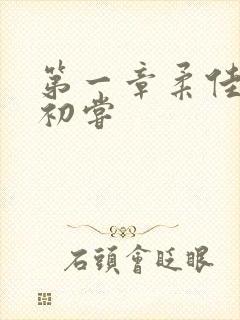 第一章柔佳
初嘗
石頭會眨眼